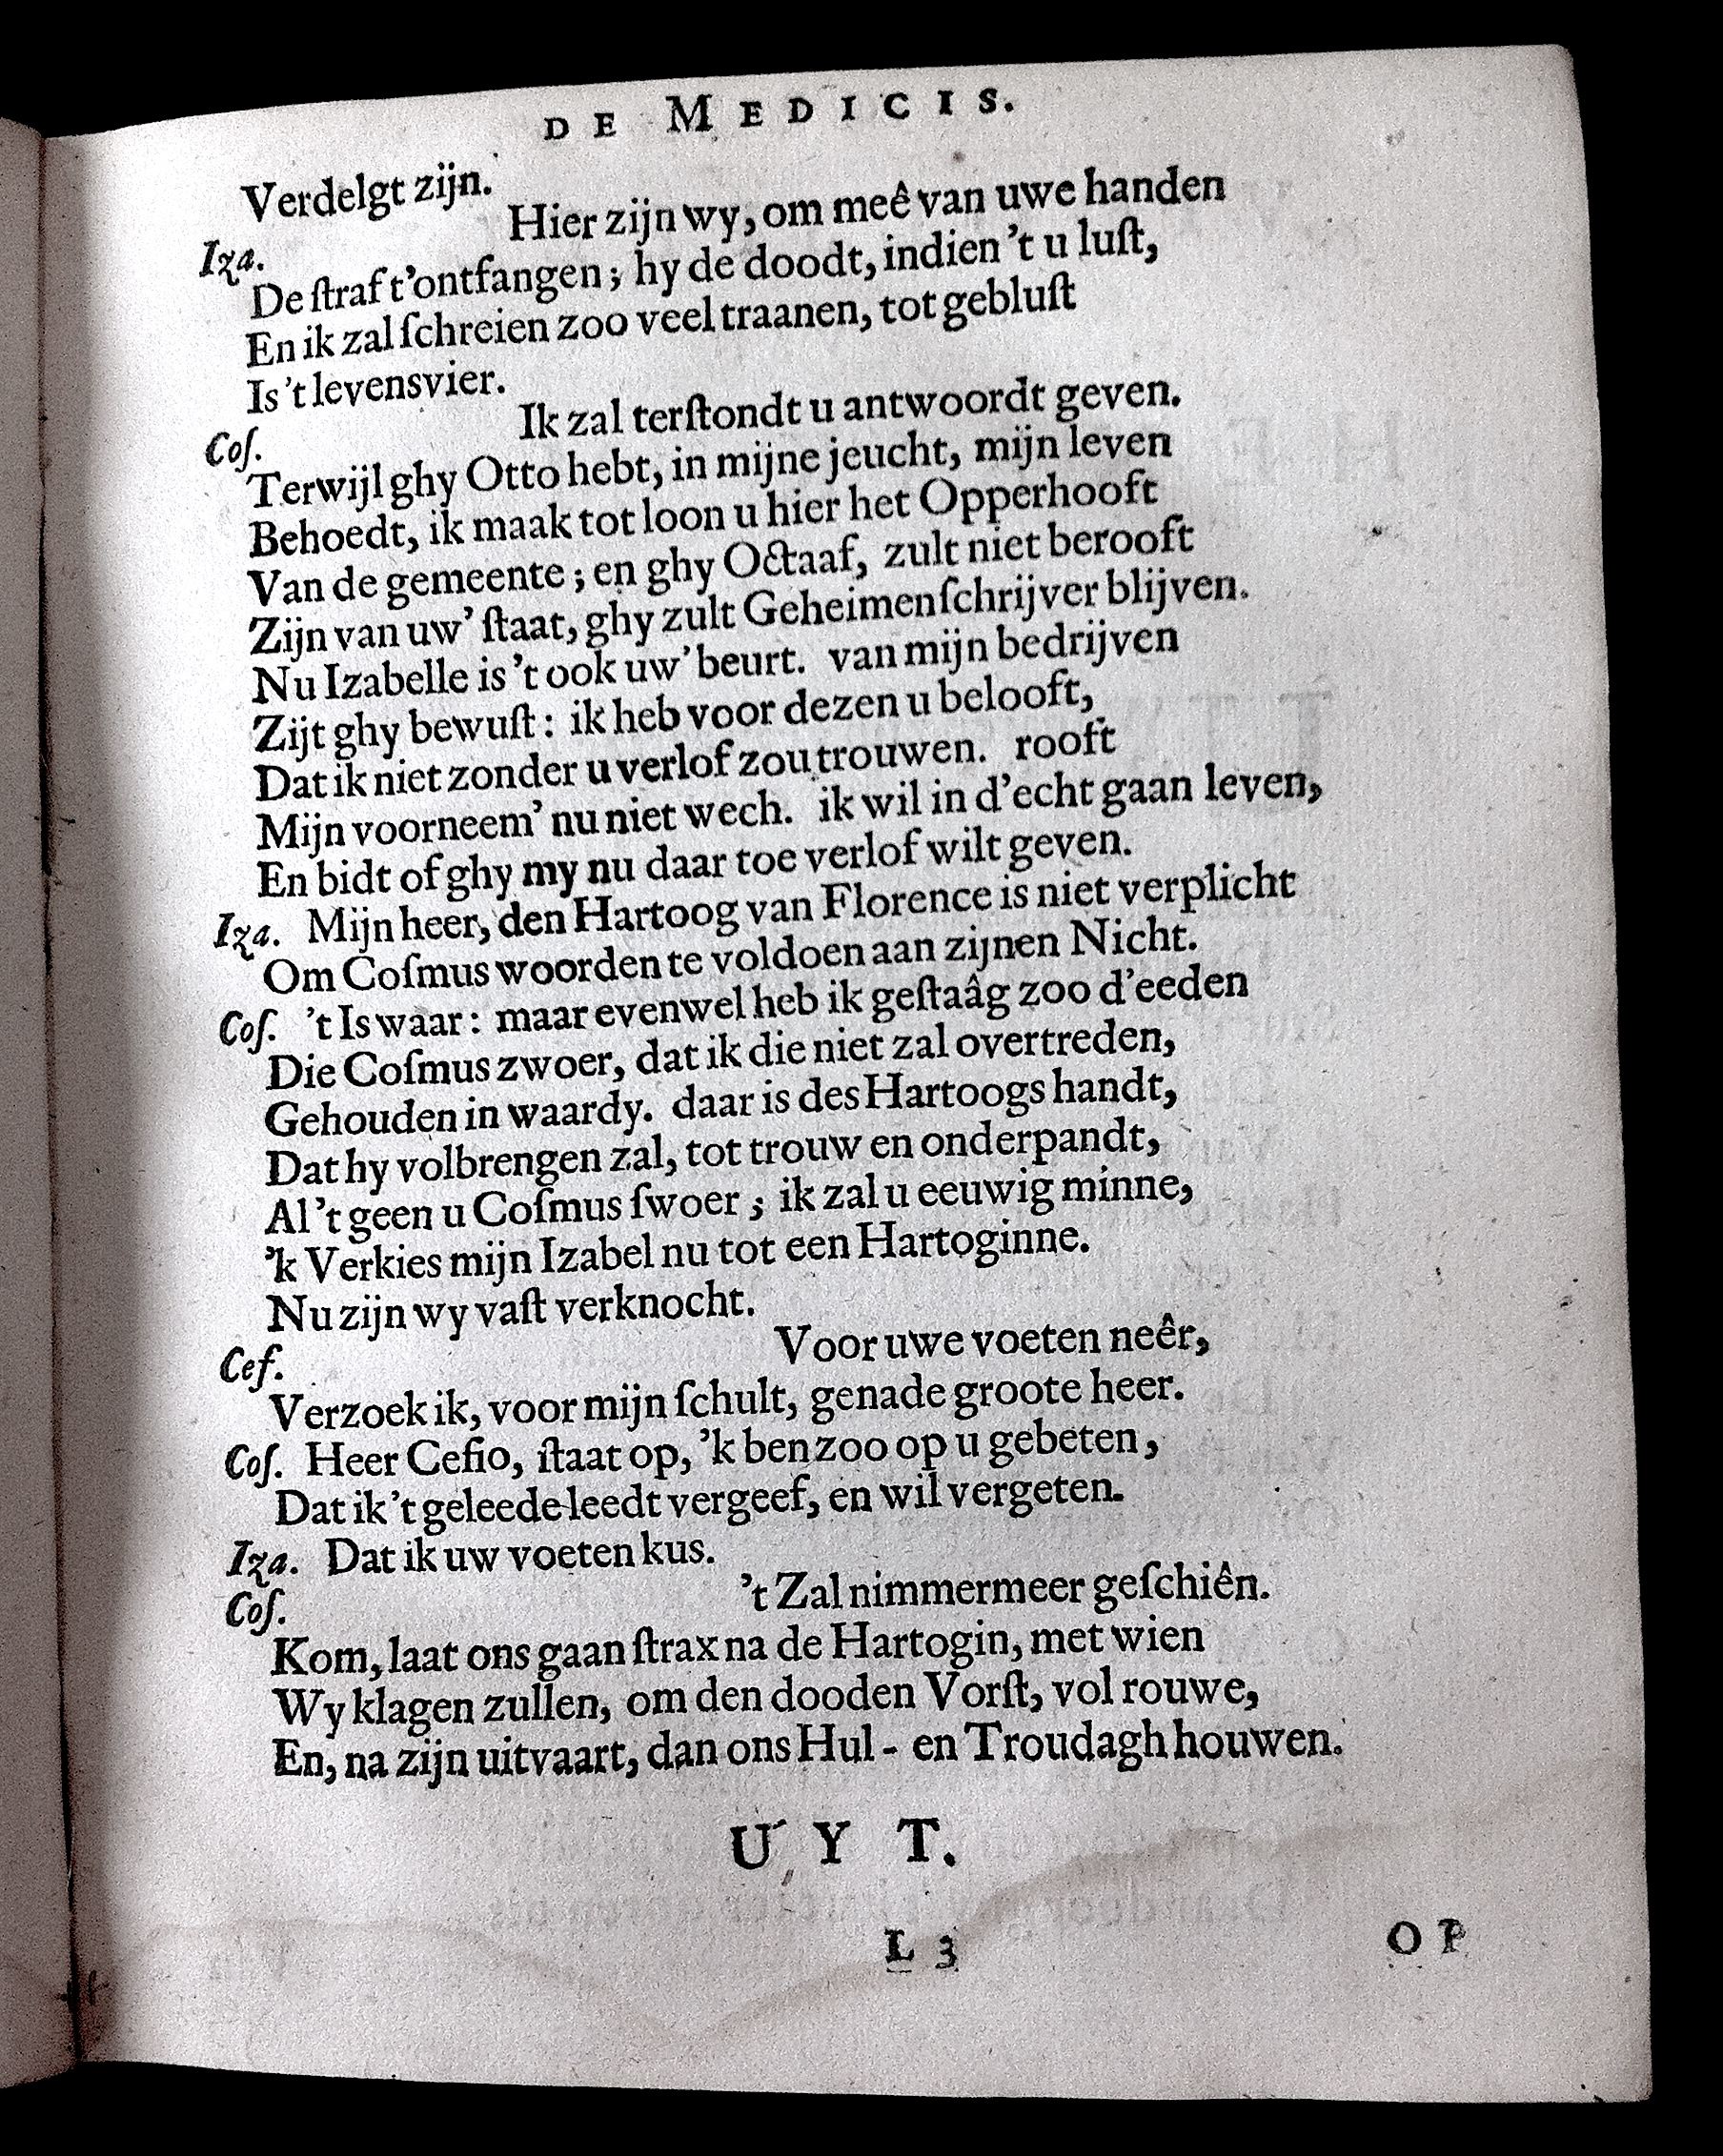 DE MEDICIS.
Verdelgt zijn.
Iza. Hier zijn wy, om meê van uwe handen
De ſtraf t'ontfangen; hy de doodt, indien 't u luſt,
En ik zal ſchreien zoo veel traanen, tot gebluſt
Is 't levensvier.
Coſ. Ik zal terſtondt u antwoordt geven.
Terwijl ghy Otto hebt, in mijne jeucht, mijn leven
Behoedt, ik maak tot loon u hier het Opperhooft
Van de gemeente; en ghy Octaaf, zult niet berooft
Zijn van uw' ſtaat, ghy zult Geheimenſchrijver blijven.
Nu Izabelle is 't ook uw' beurt. van mijn bedrijven
Zijt ghy bewuſt: ik heb voor dezen u belooft,
Dat ik niet zonder u verlof zou trouwen. rooft
Mijn voorneem' nu niet wech. ik wil in d'echt gaan leven,
En bidt of ghy my nu daar toe verlof wilt geven.
Iza. Mijn heer, den Hartoog van Florence is niet verplicht
Om Coſmus woorden te voldoen aan zijnen Nicht.
Coſ. 't Is waar: maar evenwel heb ik geſtaâg zoo d'eeden
Die Coſmus zwoer, dat ik die niet zal overtreden,
Gehouden in waardy. daar is des Hartoogs handt,
Dat hy volbrengen zal, tot trouw en onderpandt,
Al 't geen u Coſmus ſwoer; ik zal u eeuwig minne,
'k Verkies mijn Izabel nu tot een Hartoginne.
Nu zijn wy vaſt verknocht.
Ceſ. Voor uwe voeten neêr,
Verzoek ik, voor mijn ſchult, genade groote heer.
Coſ. Heer Ceſio, ſtaat op, 'k ben zoo op u gebeten,
Dat ik 't geleede leedt vergeef, en wil vergeten.
Iza. Dat ik uw voeten kus.
Coſ. 't Zal nimmermeer geſchiên.
Kom, laat ons gaan ſtrax na de Hartogin, met wien
Wy klagen zullen, om den dooden Vorſt, vol rouwe,
En, na zijn uitvaart, dan ons Hul- en Troudagh houwen.
UYT.
L 3 OP